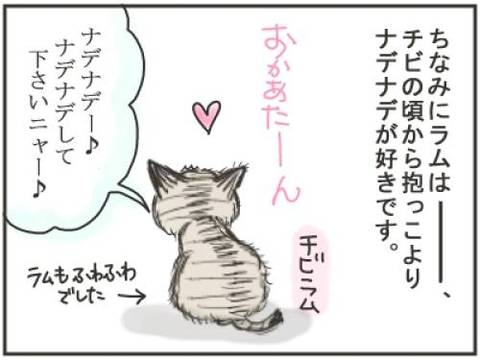 ちなみにラムは――、
チビの頃から抱っこより
ナデナデが好きです。
おかあたーん
ナデナデー♪
ナデナデして
下さいニャー♪
チビラム
ラムもふわふわ
でした→